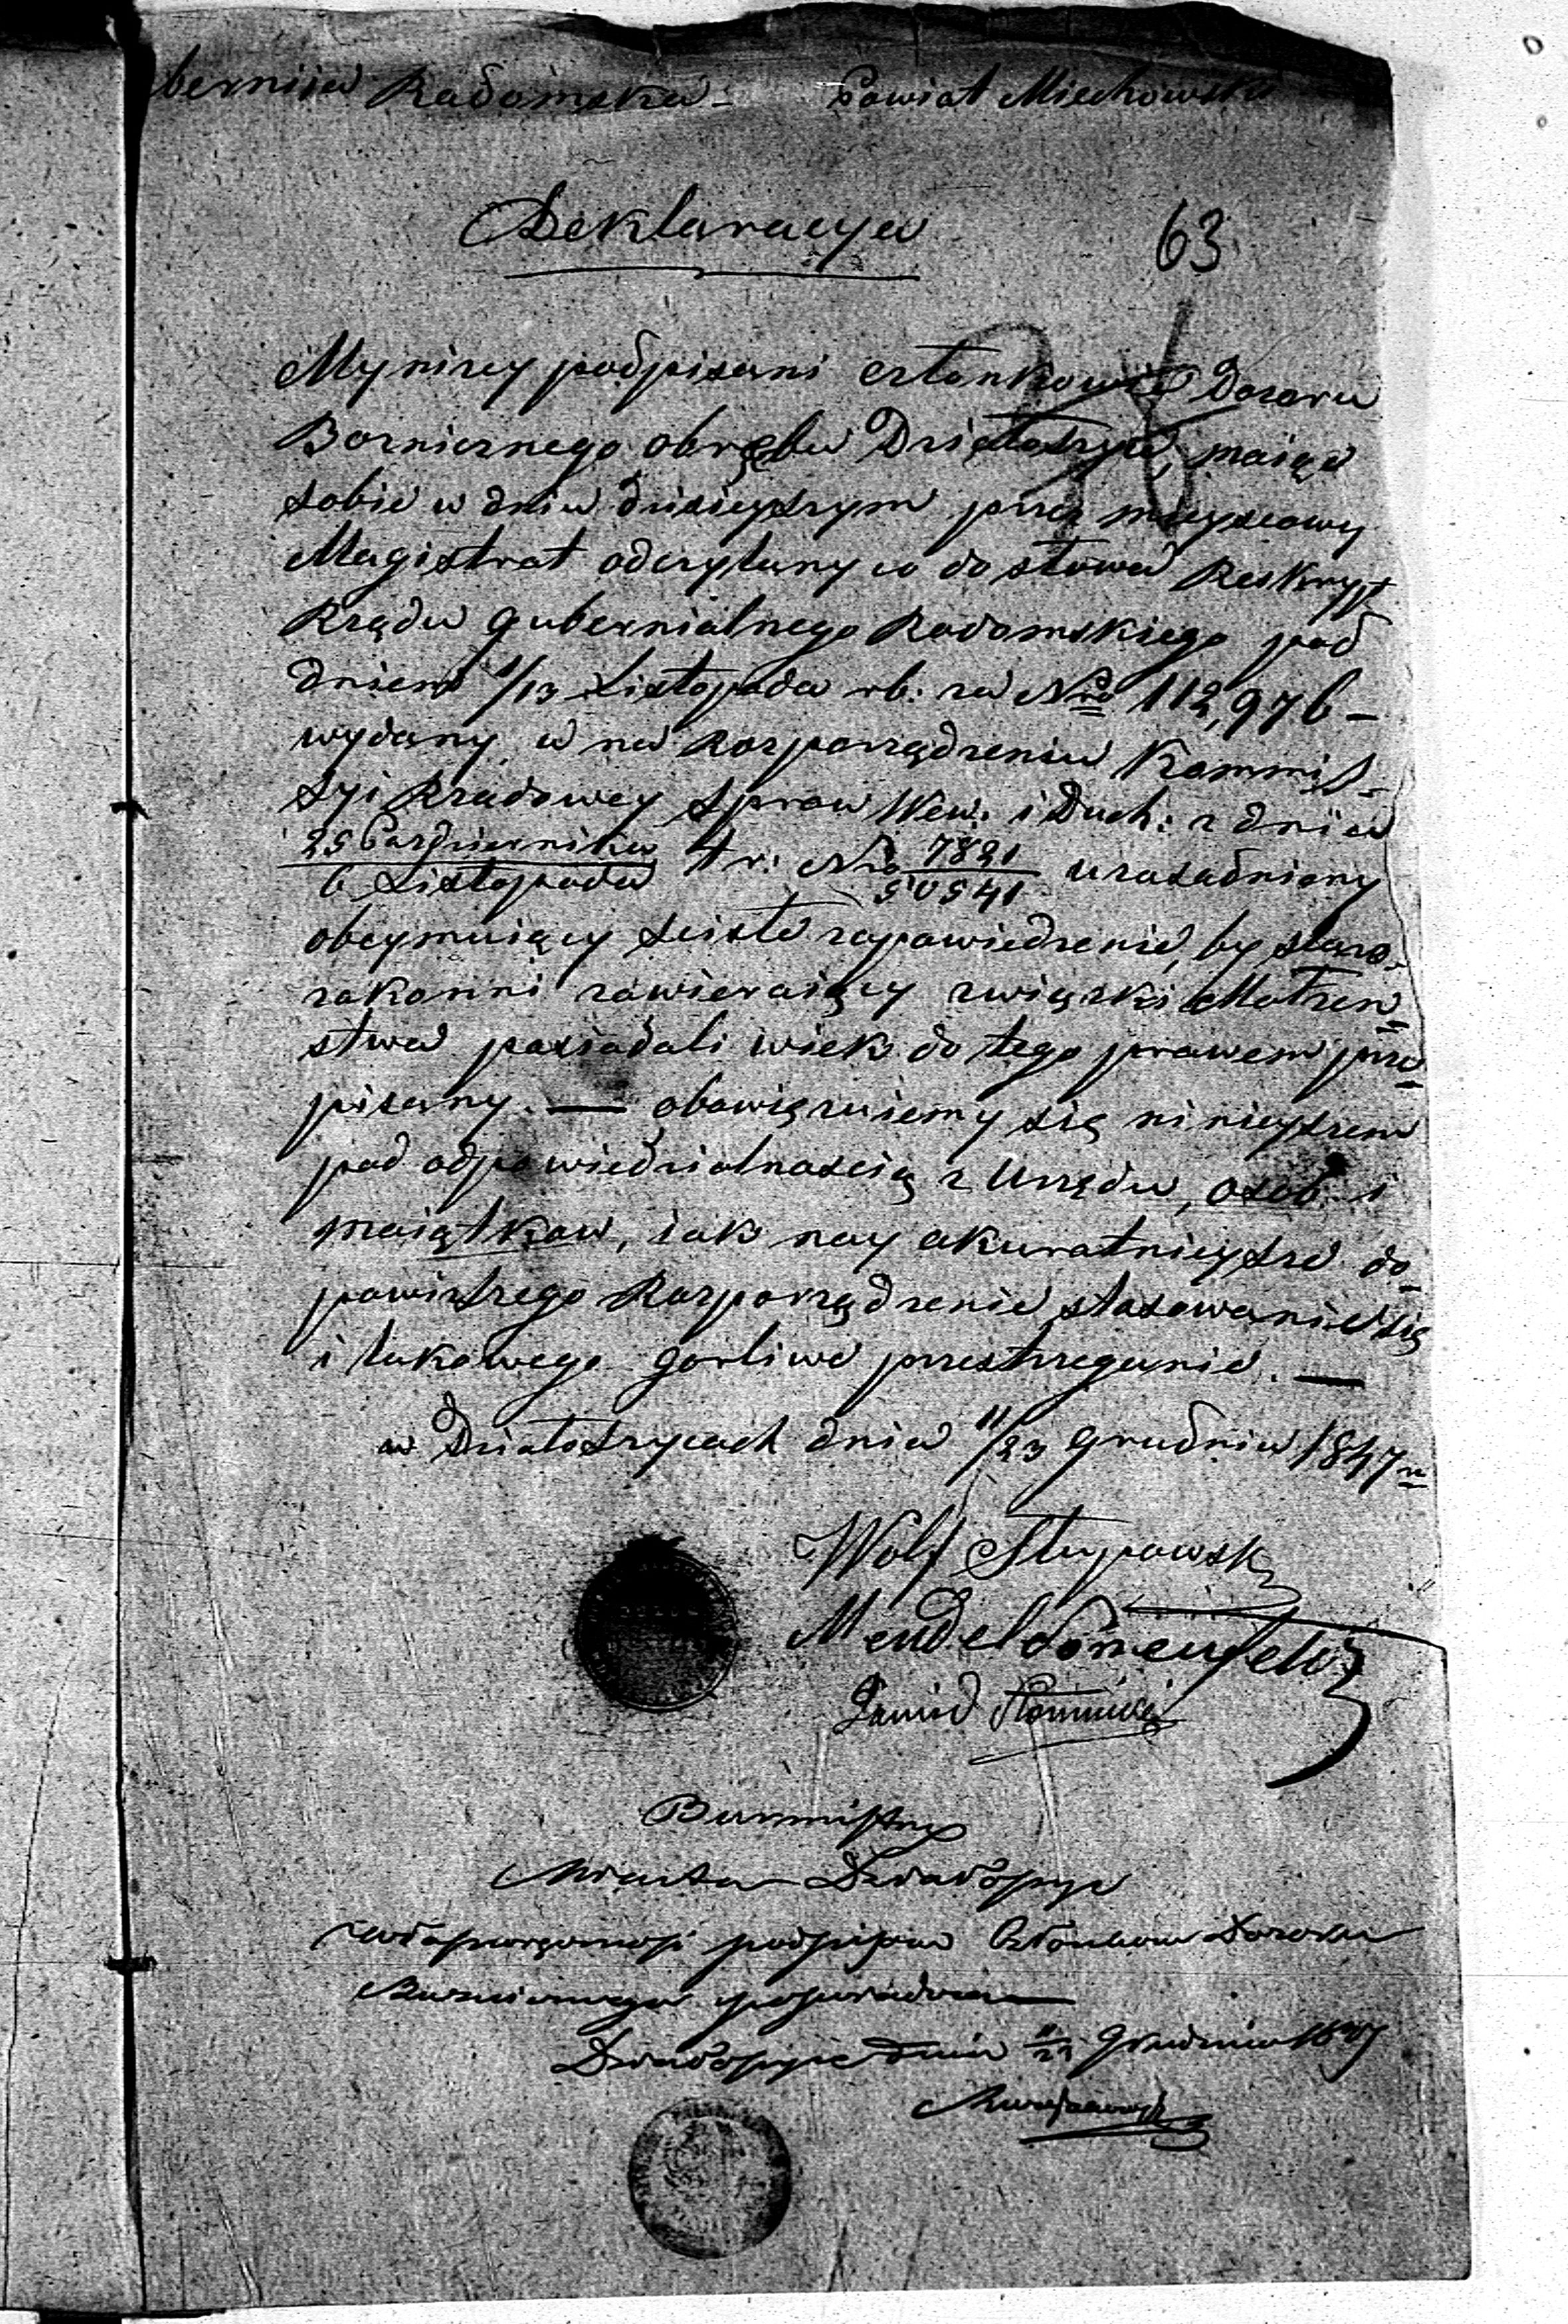 bernija Radomska - Powiat Miechowski
Deklaracya
63
My niżey podpisani członkowie Dozoru
Bożniczego obrębu Działoszyce, maiąc
sobie w dniu dzisieyszym przez mieyscowy
Magistrat odczytany co do słowa Reskrypt
Rządu Gubernialnego Radomskiego pod
dniem 1/13 Listopada rb: za Nro 112,976 -
wydany, a na Rozporządzeniu Kommis-
syi Rządowey Spraw Wew: i Duch: z dnia
25 Październike
6 Listopada tr: Nro 7821/50541 uzasadniony
obeymuiący ścisłe zapowiedzenie, by staro-
zakonni zawieraiący związki Małżeń=
stwa posiadali wiek do tego prawem prze=
pisany. — obowiązuiemy się ninieyszem
pod odpowiedzialnością z Urzędu, osob i
maiątkow, iak nay akuratnieysze do-
powiższego Rozporządzenie stosowanie się
i takowego gorliwe przestrzeganie. —
w Działoszycach dnia 11/23 Grudnia 1847 r
Wolf Stupowsk
Mendel
Dawid Słomnicki
Burmistrz
Miasta Działoszyc
własnoręczność podpisów Członków Dozoru
Bożniczego poświadcza
Działoszyce dnia 11/23 Grudnia 1847